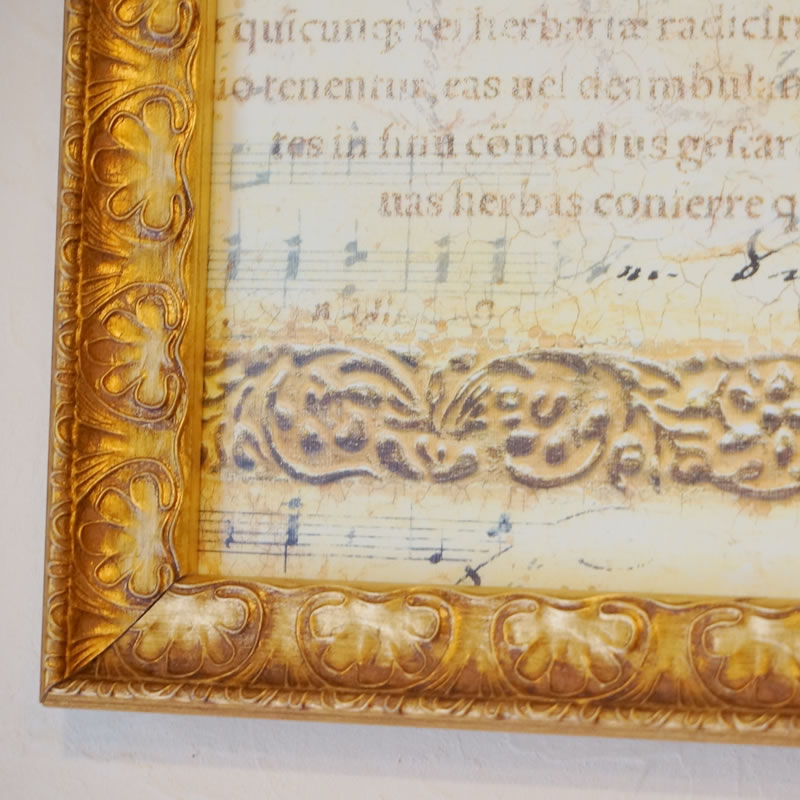 quicunqȝ rei herbariæ radicita
tenentur, eas uel deambulan
tes in sinu cõmodius gestar
uas herbas conferre q